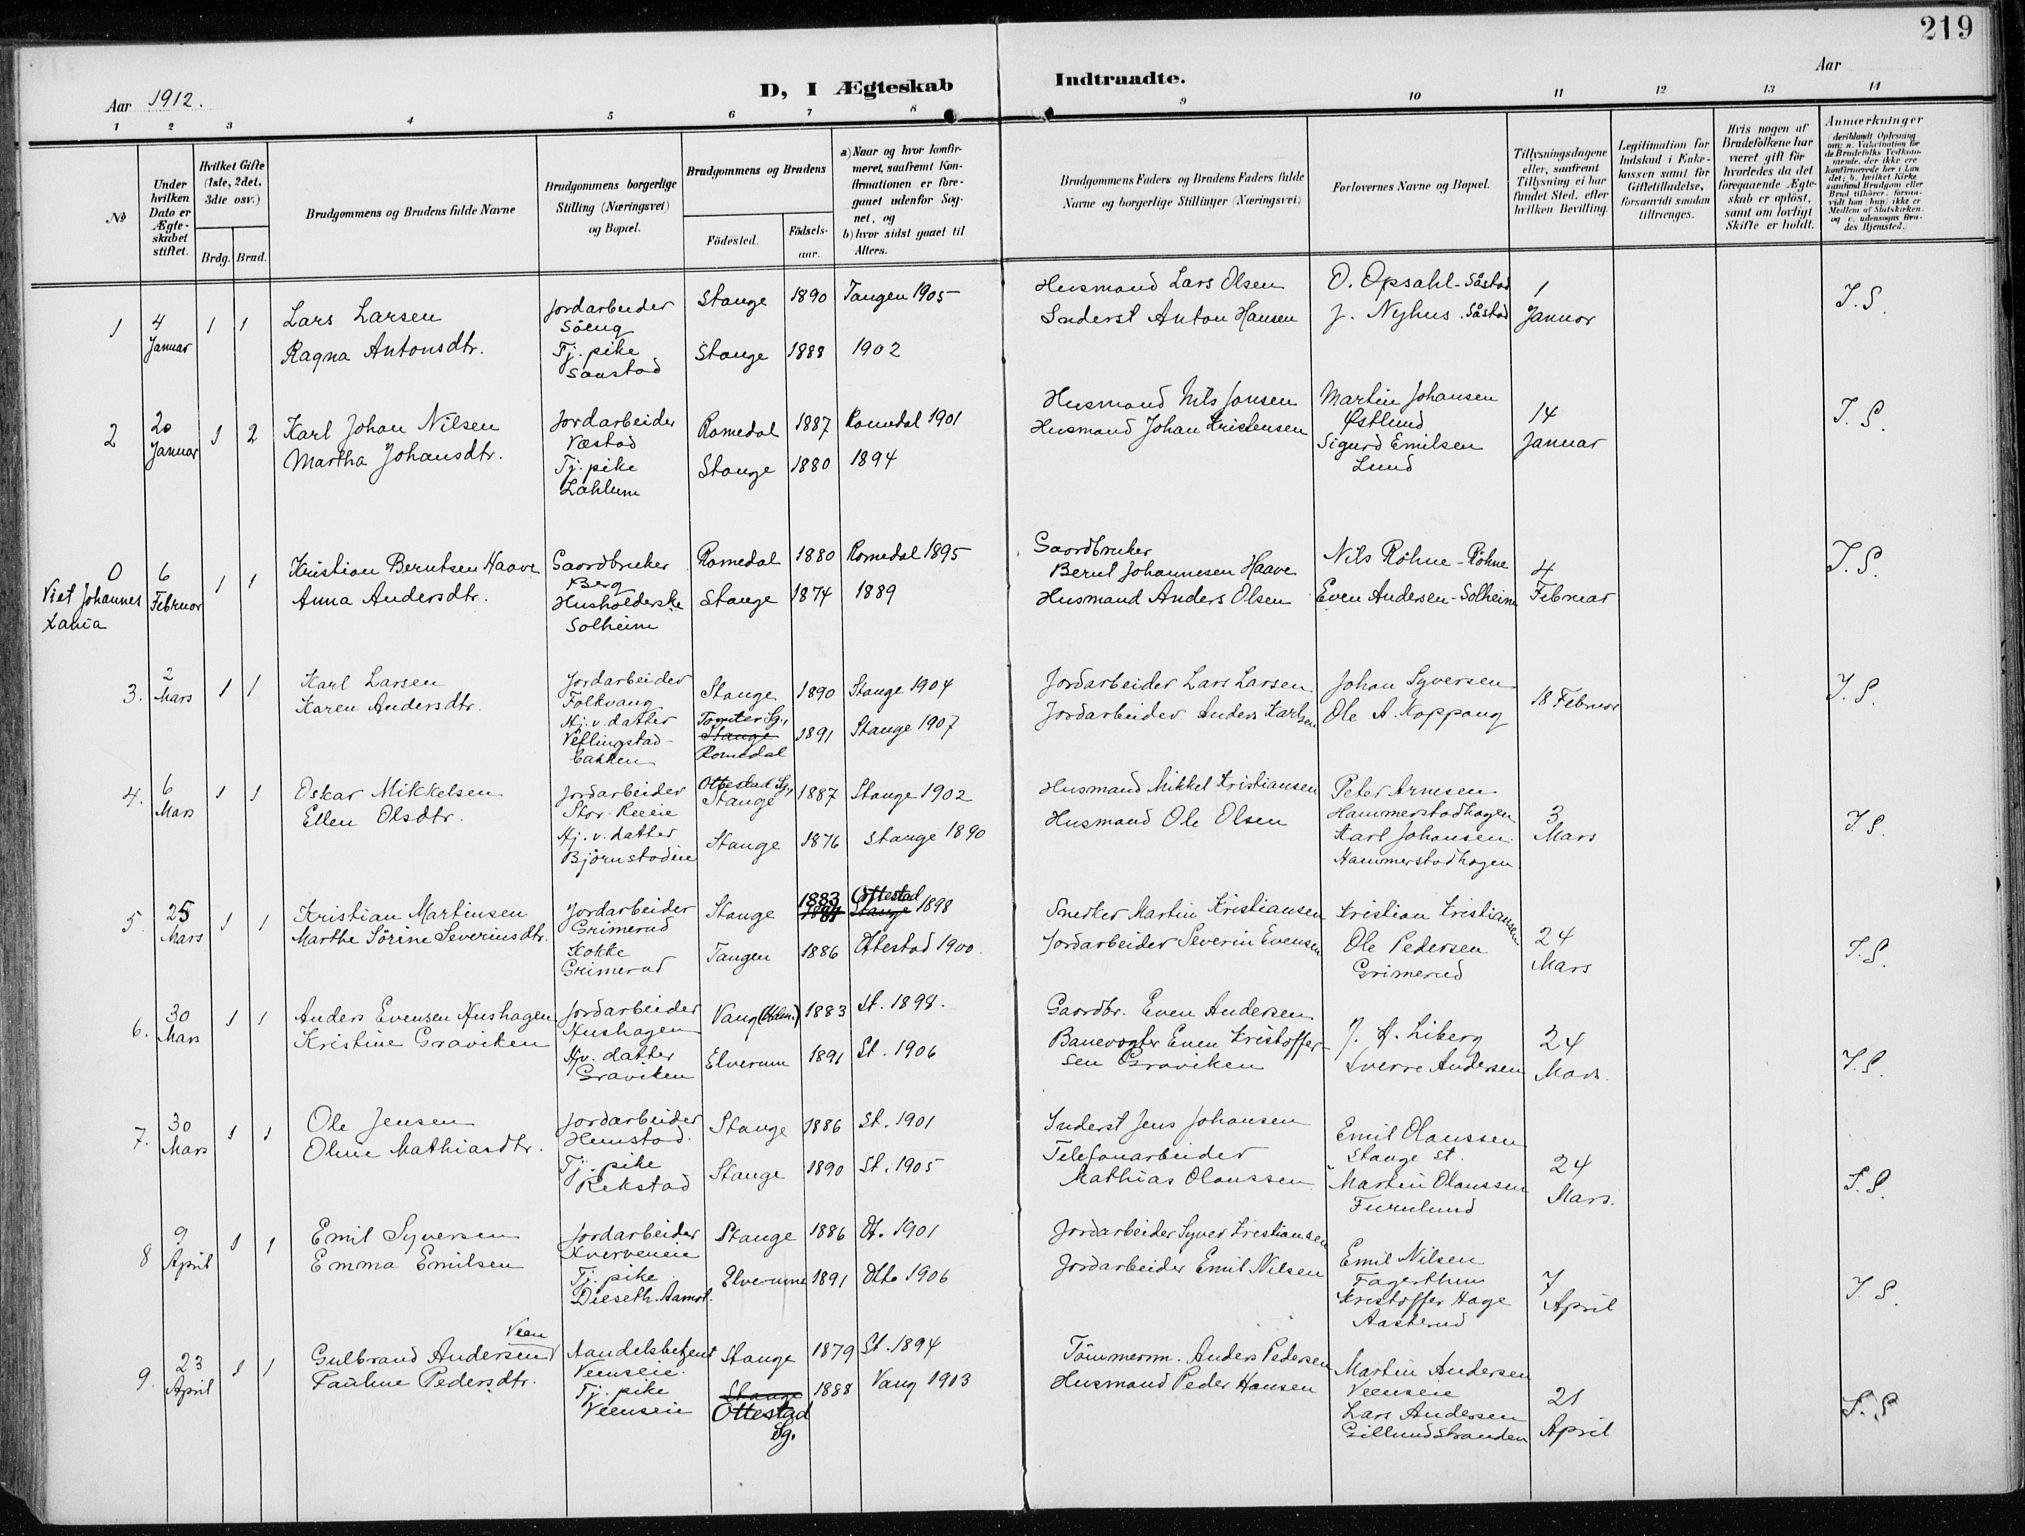 219
Aar 1912.
D, I Ægteskab Indtraadte.
Aar
1 2 3 4 5 6 7 8 9 10 11 12 13 14
No
Under hvilken Dato er Ægteskabet stiftet.
Hvilket Gifte (1ste, 2det, 3die osv.)
Brdg. Brud.
Brudgommens og Brudens fulde Navne
Brudgommens borgerlige Stilling (Næringsvei) og Bopæl.
Brudgommens og Brudens
Födested.
Födsels-aar.
a) Naar og hvor konfirmeret, saafremt Konfirmationen er foregaaet udenfor Sognet, og
b) hvor sidst gaaet til Alters.
Brudgommens Faders og Brudens Faders fulde Navne og borgerlige Stillinger (Næringsvei)
Forlovernes Navne og Bopæl.
Tillysningsdagene eller, saafremt Tillysning ei har fundet Sted, efter hvilken Bevilling.
Legitimation for Indskud i Enkekassen samt for Giftetilladelse, forsaavidt saadan tiltrænges.
Hvis nogen af Brudefolkene har været gift för hvorledes da det foregaaende Ægteskab er oplöst, samt om lovligt Skifte er holdt.
Anmærkninger
1
4 Januar
1 1
Lars Larsen
Ragna Antonsdtr.
Jordarbeider
Söeng
Tj. pike
Saustad
Stange 1890 Tangen 1905
Stange 1888 1902
Husmand Lars Olsen
Inderst Anton Hansen
O. Opsahl - Såstad
J. Nyhus. Såstad
1 Januar
I. S.
2
20 Januar
1 2
Karl Johan Nilsen
Martha Johansdtr.
Jordarbeider
Væstad
Tj. pike
Lahlum
Romedal 1887 Romedal 1901
Stange 1880 1894
Husmand Nils Jonsen
Husmand Johan Kristensen
Martin Johansen
Østlund
Sigurd Emilsen
Lund
14 Januar
I. S.
0
Viet Johannes
6 Februar
1 1
Kristian Berntsen Haave
Anna Andersdtr.
Gaardbruker
Berg
Husholderske
Solheim
Romedal 1880 Romedal 1895
Stange 1874 1889
Gaardbruker
Bernt Johannesen Haave
Husmand Anders Olsen
Nils Röhne - Röhne
Even Andersen - Solheim
4 Februar
I. S.
3.
2 Mars
1 1
Karl Larsen
Karen Andersdtr.
Jordarbeider
Folkvang
Hj. v. datter
Veflingstad-
bakken
Stange 1890 Stange 1904
Tomter Sg.,
Stange
Romedal
1891 Stange 1907
Jordarbeider Lars Larsen
Jordarbeider Anders Karlsen
Johan Syversen
Ole A. Koppang
18 Februar
I. S.
4.
6 Mars
1 1
Oskar Mikkelsen
Ellen Olsdtr.
Jordarbeider
Stor-Reeie
Hj. v. datter
Björnstadeie
Ottestad Sg.,
Stange 1887 Stange 1902
Stange 1876 Stange 1890
Husmand Mikkel Kristiansen
Husmand Ole Olsen
Peter Arnesen
Hammerstadhagen
Karl Johansen
Hammerstadhagen
3 Mars
I. S.
5.
25 Mars
1 1
Kristian Martinsen
Marthe Sörine Severinsdtr.
Jordarbeider
Grimerud
Kokke
Grimerud
Stange 1883 1884 Ottestad Stange 1898
Tangen 1886 Ottestad 1900.
Snedker Martin Kristiansen
Jordarbeider Severin Evensen
Kristian Kristiansen
Ole Pedersen
Grimerud
24 Mars
I. S.
6.
30 Mars
1 1
Anders Evensen Aushagen
Kristine Graviken
Jordarbeider
Aushagen
Hjv. datter
Graviken
Vang 1883 St. 1898.
Elverum 1891 St. 1906
Gaardbr. Even Andersen
Banevogter Even Kristoffer-
sen Graviken
J. A. Liberg
Sverre Andersen
24 Mars.
I. S.
7.
30 Mars
1 1
Ole Jensen
Oline Mathiasdtr.
Jordarbeider
Hemstad.
Tj. pike
Rekstad
Stange 1886 St. 1901
Stange 1890 St. 1905
Inderst Jens Johansen
Telefonarbeider
Mathias Olaussen
Emil Olaussen
Stange st.
Martin Olaussen
Furulund
24 Mars.
I. S.
8
9 April
1 1
Emil Syversen
Emma Emilsen
Jordarbeider
Kverveneie
Tj. pike
Dieseth. Aamot.
Stange 1886 Ot. 1901
Elverum 1891 Otto 1906
Jordarbeider Syver Kristiansen
Jordarbeider Emil Nilsen
Emil Nilsen
Fagerthun
Kristoffer Hage
Aasterud
7 April
I. S.
9.
23 April
1 1
Veen
Gulbrand Andersen
Pauline Pedersdtr.
Handelsbetjent
Veenseie.
Tj. pike
Veenseie
Stange 1879 St. 1894
Stange
Ottestad Sg.
1888 Vang 1903
Tömmerm. Anders Pedersen
Husmand Peder Hansen
Martin Andersen
Veenseie
Lars Andersen
Gillundstranden
21 April
I. S.